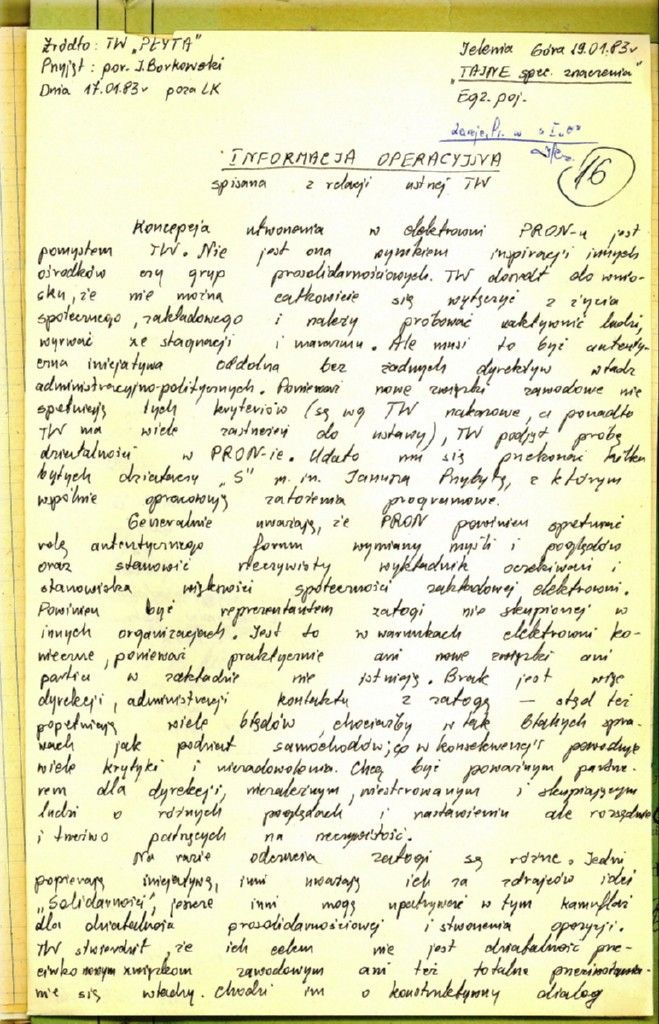 Źródło: TW „PŁYTA"
Przyjął: por. J. Borkowski
Dnia 17.01.83r poza LK
Jelenia Góra 19.01.83r
"TAJNE spec. znaczenia"
Egz. poj.
16
INFORMACJA OPERACYJNA
spisana z relacji ustnej TW
Koncepcja utworzenia w elektrowni PRON-u jest
pomysłem TW. Nie jest ona wynikiem inspiracji innych
ośrodków czy grup prosolidarnościowych. TW doszedł do wnio-
sku, że nie można całkowicie się wyłączyć z życia
społecznego, zakładowego i należy próbować uaktywnić ludzi,
wyrwać ze stagnacji i marazmu. Ale musi to być autenty-
czna inicjatywa oddolna bez żadnych dyrektyw władz
administracyjno-politycznych. Ponieważ nowe związki zawodowe nie
spełniają tych kryteriów (są wg TW nakazowe, a ponadto
TW ma wiele zastrzeżeń do ustawy), TW podjął próbę
działalności w PRON-ie. Udało mu się przekonać kilku
byłych działaczy „S" m.in. Janusza Przybyłę, z którym
wspólnie opracowują założenia programowe.
Generalnie uważają, że PRON powinien spełniać
rolę autentycznego forum wymiany myśli i poglądów
oraz stanowić rzeczywisty wykładnik oczekiwań i
stanowiska większości społeczności zakładowej elektrowni.
Powinien być reprezentantem załogi nie skupionej w
innych organizacjach. Jest to w warunkach elektrowni ko-
nieczne, ponieważ praktycznie ani nowe związki ani
partia w zakładzie nie istnieją. Brak jest więc
dyrekcji, administracji kontaktu z załogą — stąd też
popełniają wiele błędów, chociażby w tak błahych spra-
wach jak podział samochodów; co w konsekwencji powoduje
wiele krytyki i niezadowolenia. Chcą być poważnym partne-
rem dla dyrekcji, niezależnym, niesterowanym i skupiającym
ludzi o różnych poglądach i nastawieniu ale rozsądnie
i trzeźwo patrzących na rzeczywistość.
Na razie odczucia załogi są różne. Jedni
popierają inicjatywę, inni uważają ich za zdrajców idei
„Solidarności", jeszcze inni mogą upatrywać w tym kamuflaż
dla działania prosolidarnościowej i stworzenia opozycji.
TW stwierdził, że ich celem nie jest działalność prze-
ciwko nowym związkom zawodowym ani też totalne
nie się władzy. Chodzi im o konstruktywny dialog